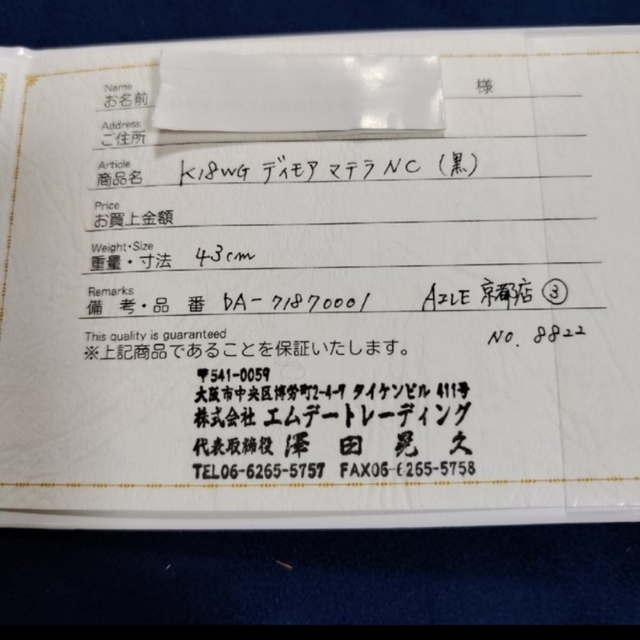 Name
お名前 様
Address
ご住所
Article
商品名 K18WG ディモア マテラ NC (黒)
Price
お買上金額
Weight・Size
重量・寸法 43cm
Remarks
備考・品番 DA-71870001 AZLE 京都店 ③
This quality is guaranteed NO. 8822
※上記商品であることを保証いたします。
〒541-0059
大阪市中央区博労町2-4-7 タイケンビル 411号
株式会社 エムデートレーディング
代表取締役 澤田晃久
TEL06-6265-5757 FAX06-6265-5758